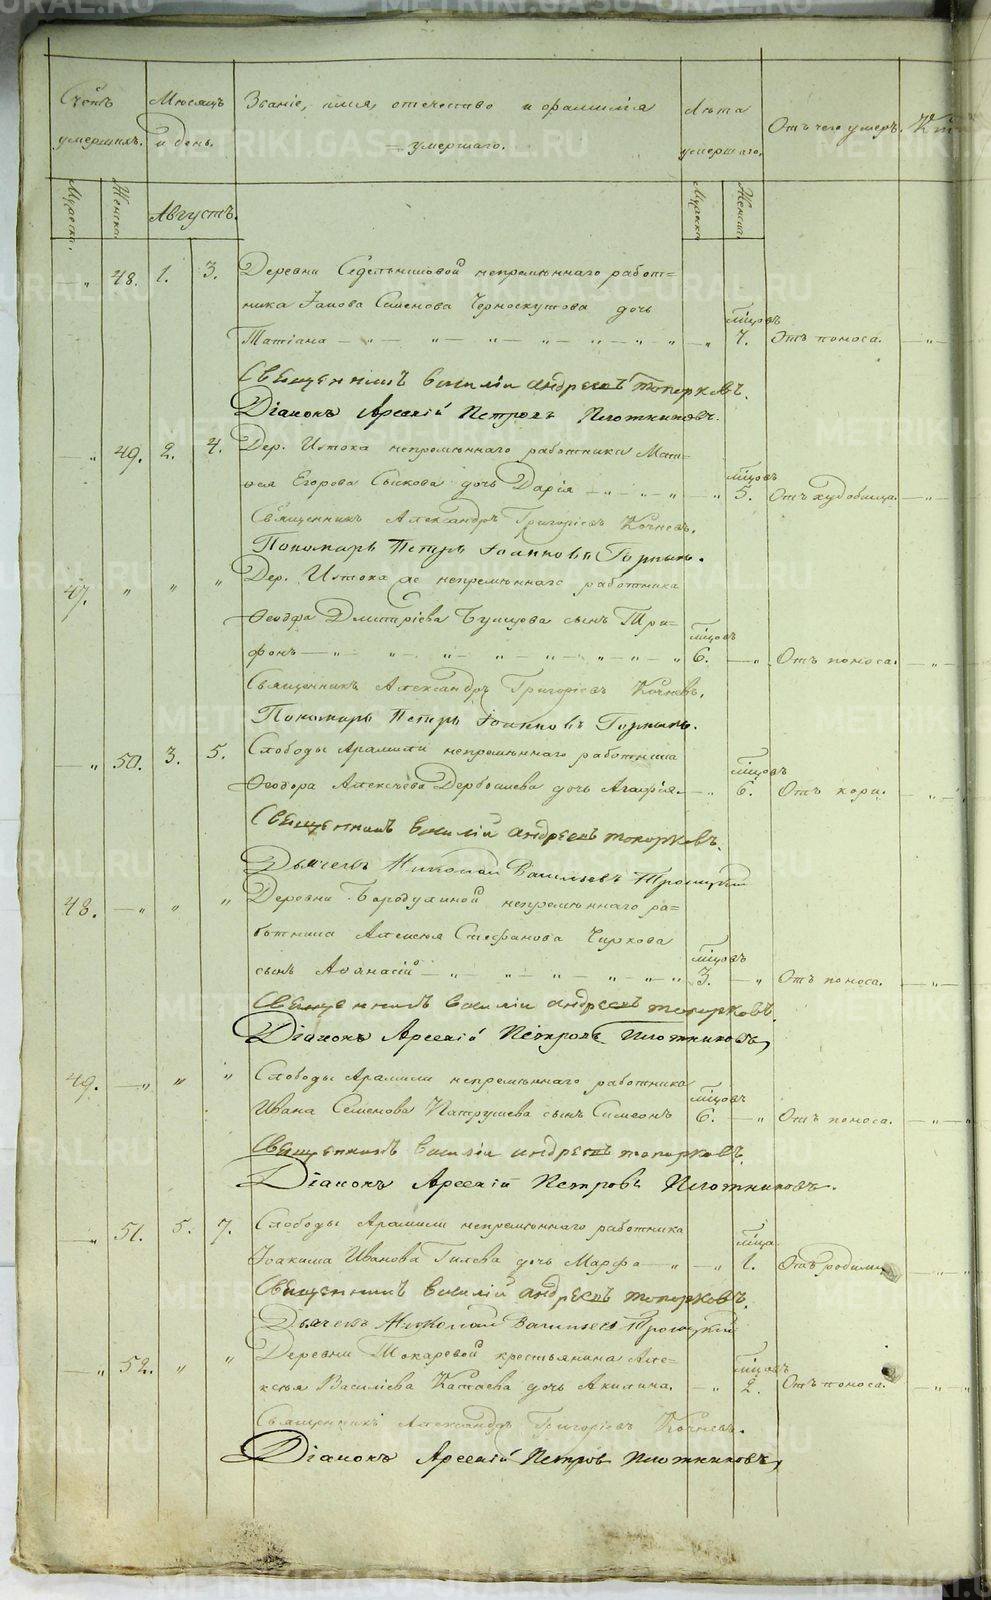 Счетъ умершихъ.
Мѣсяцъ и день.
Званіе, имя, отечество и фамилія умершаго.
Лѣта умершаго.
Отъ чего умеръ.
Мужеска.
Женска.
Августъ.
Мужеска
Женска.
— „ 48. 1. 3. Деревни Седельниковой непремѣннаго работ=
ника Іакова Семенова Черноскутова дочь
мѣсяцовъ
Татіана — „ — „ — „ — „ — „ 7. Отъ поноса. — „ —
Священникъ Василіи Андреевъ Топорковъ.
Діаконъ Арсеній Петровъ Плотниковъ.
— „ 49. 2. 4. Дер. Истока непремѣннаго работника Мат=
мѣсяцовъ
ѳея Егорова дочь Дарія — „ — „ — „ 5. Отъ худобища. — „ —
Священникъ Александръ Григоріевъ Кочневъ.
Пономарь Петръ Іоанновъ
47. „ „ „ Дер. Истока же непремѣннаго работника
Дмитріева сынъ Три=
мѣсяцовъ
фонъ — „ — „ — „ — „ — „ 6. — „ Отъ поноса. — „ —
Священникъ Александръ Григоріевъ Кочневъ.
Пономарь Петръ Іоанновъ
— „ 50. 3. 5. Слободы Арамили непремѣннаго работника
мѣсяцовъ
Ѳеодора Алексѣева Дербышева дочь Агафія. — „ 6. Отъ кори. — „ —
Священникъ Василій Андреевъ Топорковъ.
Дьячекъ Николай Васильевъ Троицкій
48. — „ „ „ Деревни Бородулиной непремѣннаго ра=
ботника Алексѣя Стефанова Чиркова
мѣсяцовъ
сынъ Аѳанасій — „ — „ — „ „ „ 3. — „ Отъ поноса. — „ —
Священникъ Василіи Андреевъ Топорковъ.
Діаконъ Арсеній Петровъ Плотниковъ,
49. — „ „ „ Слободы Арамили непремѣннаго работника
мѣсяцовъ
Ивана Семенова Патрушева сынъ Симеонъ 6. — „ Отъ поноса. — „ —
Священникъ Василіи Андреевъ Топорковъ.
Діаконъ Арсеній Петровъ Плотниковъ.
— „ 51. 5. 7. Слободы Арамили непремѣннаго работника
мѣсяца
Іоакима Иванова Гилева дочь Марфа — „ — „ 1. Отъ родимца
Священникъ Василій Андреевъ Топорковъ.
Дьячекъ Николай Васильевъ Троицкій
— „ 52. „ „ Деревни Токаревой крестьянина Але=
мѣсяцовъ
ксѣя Василіева Катаева дочь Акилина. — „ 2. Отъ поноса. — „ —
Священникъ Александръ Григоріевъ Кочневъ.
Діаконъ Арсеній Петровъ Плотниковъ,
METRIKI.GASO-URAL.RU